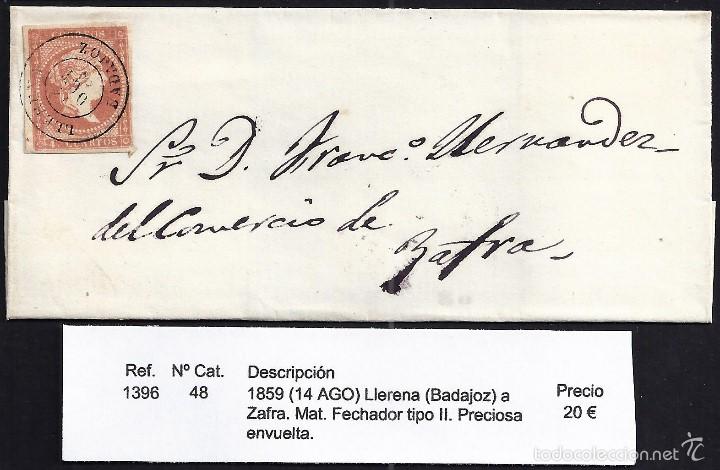 BADAJOZ
CUARTOS
Sr. D. Franco. Hernandez
del Comercio de
Zafra
Ref. Nº Cat. Descripción Precio
1396 48 1859 (14 AGO) Llerena (Badajoz) a 20 €
Zafra. Mat. Fechador tipo II. Preciosa
envuelta.
todocoleccion